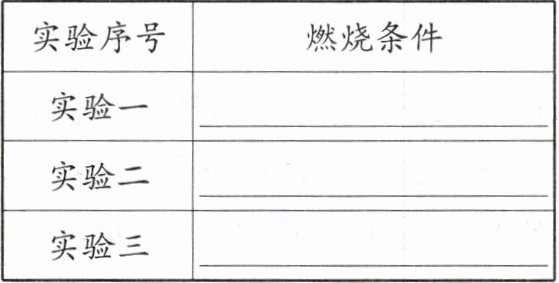 实验序号 燃烧条件
实验一
实验二
实验三